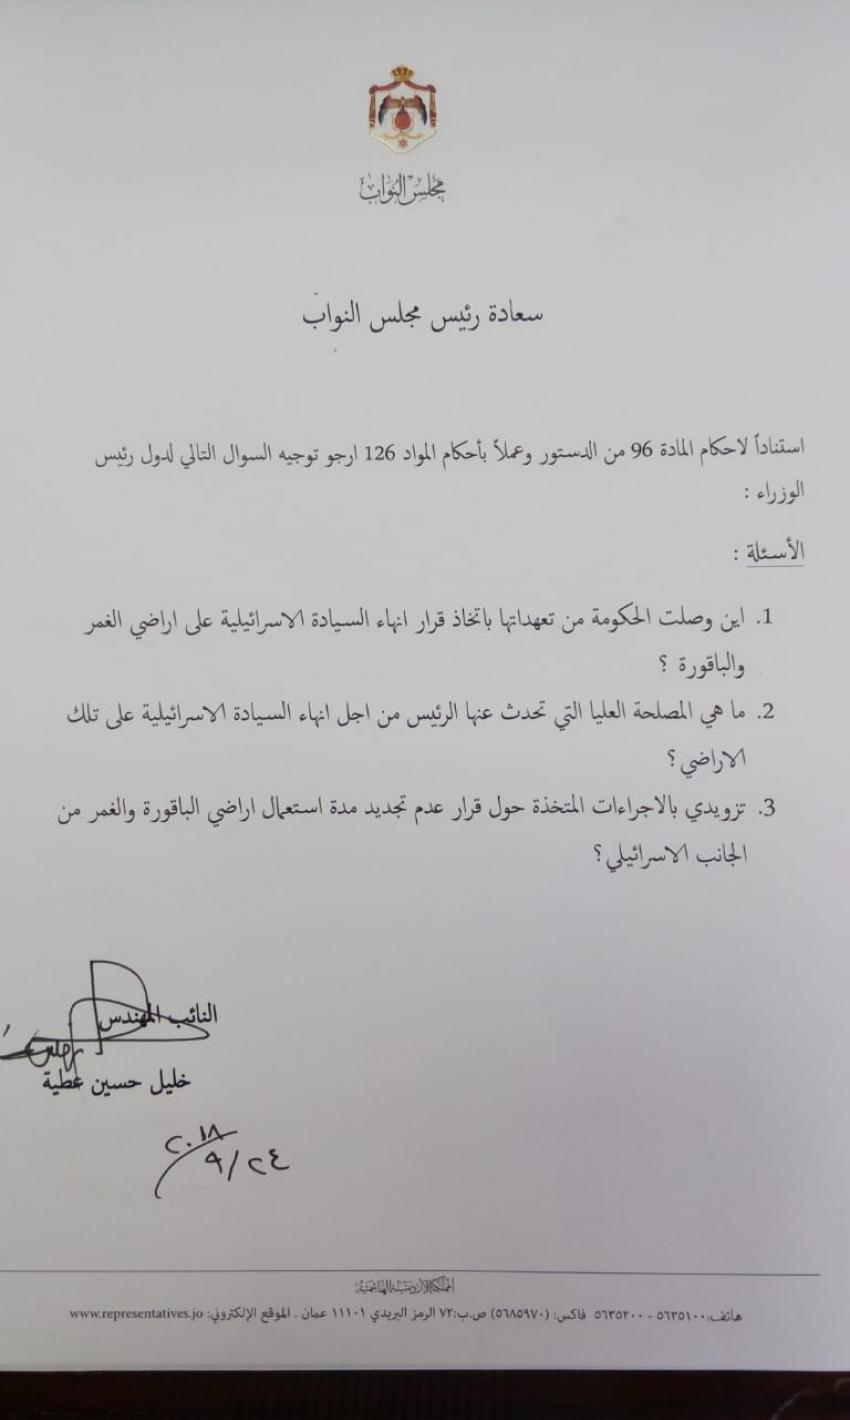 مجلس النواب
سعادة رئيس مجلس النواب
استناداً لاحكام المادة 96 من الدستور وعملاً بأحكام المواد 126 ارجو توجيه السوال التالي لدول رئيس
الوزراء :
الأسئلة :
1. اين وصلت الحكومة من تعهداتها باتخاذ قرار انهاء السيادة الاسرائيلية على اراضي الغمر
والباقورة ؟
2. ما هي المصلحة العليا التي تحدث عنها الرئيس من اجل انهاء السيادة الاسرائيلية على تلك
الاراضي؟
3. تزويدي بالاجراءات المتخذة حول قرار عدم تجديد مدة استعمال اراضي الباقورة والغمر من
الجانب الاسرائيلي؟
النائب المهندس
خليل حسين عطية
٢٠١٨
٩/٢٤
المملكة الأردنية الهاشمية
هاتف:٥٦٣٥١٠٠ - ٥٦٣٥٢٠٠ فاكس: (٥٦٨٥٩٧٠) ص.ب:٧٢ الرمز البريدي ١١١٠١ عمان . الموقع الإلكتروني: www.representatives.jo